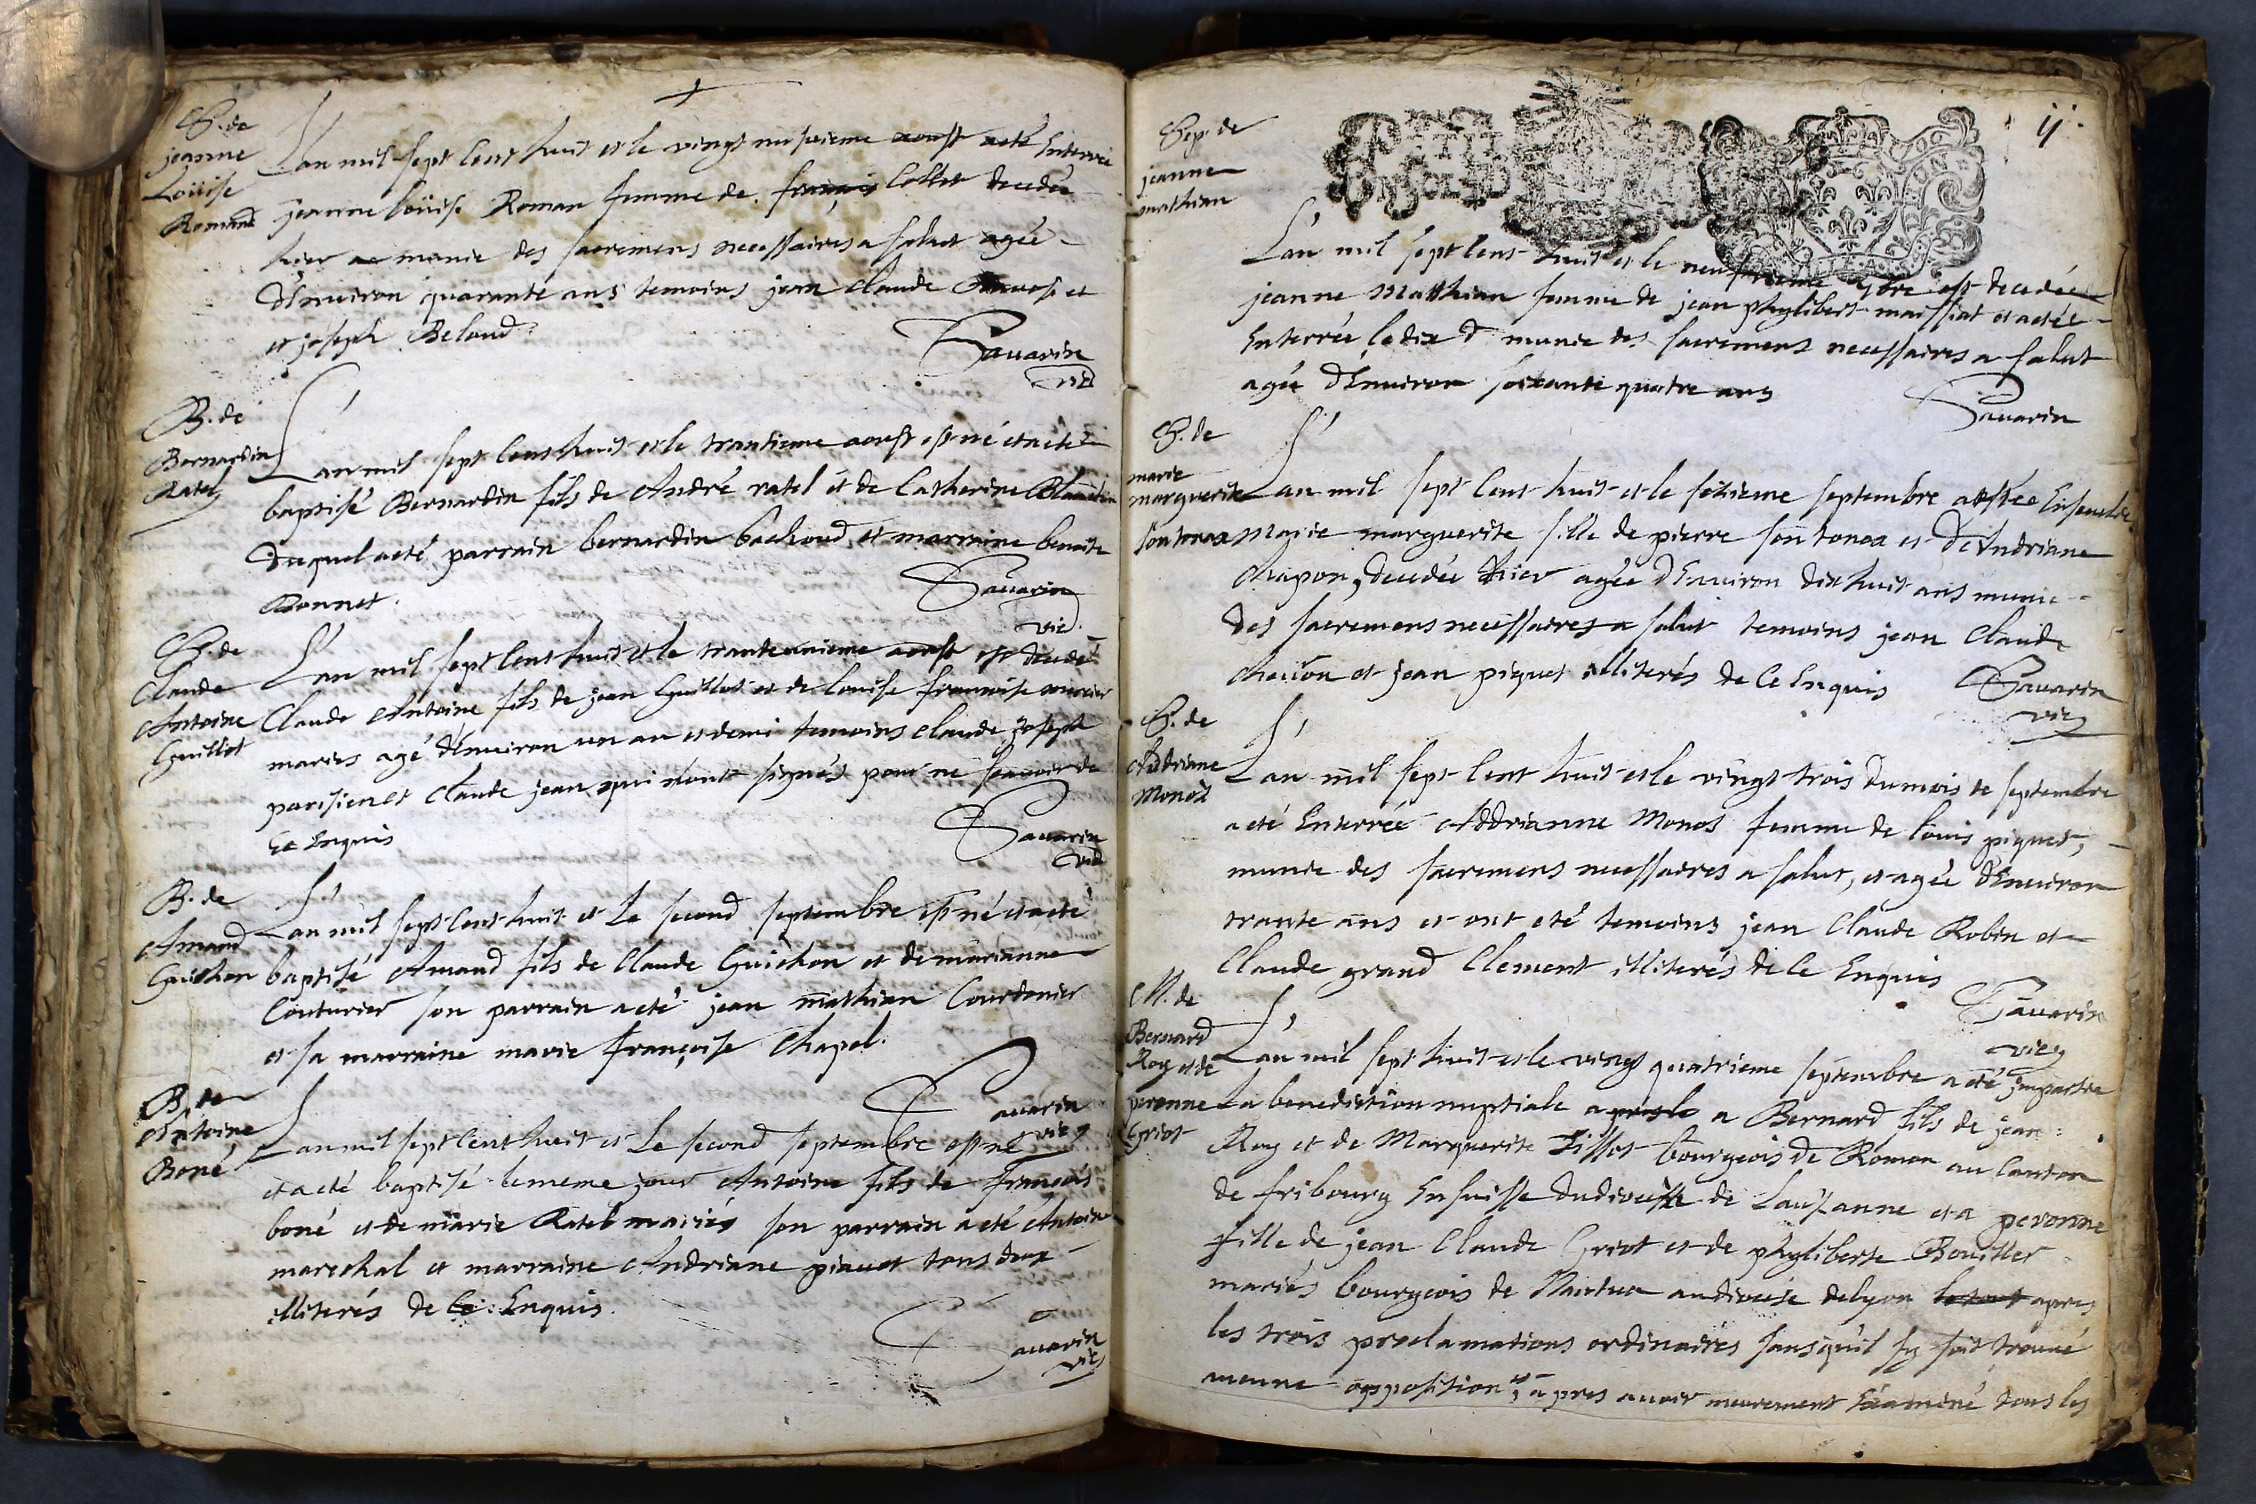 S. de
jeanne
Loüise
Roman
L'an mil sept cent huit et le vingt neufvieme aoust a eté Enterrée
jeanne loüise Roman femme de françois Collet decedée
hier munie des sacremens necessaires a salut agée
d'Environ quarante ans temoins jean claude et
et joseph Beloud
Sauarin
vic
B. de
Bernardin
Ratel
L'an mil sept cent huit et le trantieme aoust est né et a eté
baptisé Bernardin fils de André ratel et de Catherine
duquel a eté parrain bernardin bachoud et marraine benoite
Bonnet.
Sauarin
vic.
S. de
Claude
Antoine
Guillot
L'an mil sept cent huit et le trante unieme aoust est decedé
Claude Antoine fils de jean Guillot et de louise françoise mercier
mariés agé d'Environ un an et demi temoins claude joseph
parisien et claude jean qui n'ont signés pour ne sçauoir de
ce Enquis
Sauarin
vic
B. de
Amand
Guichon
L'an mil sept cent huit et Le second septembre est né et a eté
baptisé Amand fils de Claude Guichon et de marianne
Couturier son parrain a eté jean mathian Courdenier
et sa marraine marie françoise Chapel.
Sauarin
vic
B. de
Antoine
Boné
L'an mil sept cent huit et Le second septembre est né
et a eté baptisé le meme jour Antoine fils de François
boné et de marie Ratel mariés son parrain a eté Antoine
marechal et marraine Andriane piquet tous deux
illiterés de ce Enquis.
Sauarin
vic
ij.
Sep. de
jeanne
mathian
L'an mil sept cent huit et le neufvieme 7bre est decedée
jeanne Matthian femme de jean phylibert maissiat et a eté
Enterrée le dix d munie des sacremens necessaires a salut
agée d'Environ soixante quatre ans
Sauarin
S. de
marie
marguerite
sontonax
L'an mil sept cent huit et le seizieme septembre a estée Enseuelie
Marie marguerite fille de pierre sontonax et d'Andriane
chapon, decedée hier agée d'Enuiron dix huit ans munie
des sacremens necessaires a salut temoins jean Claude
et jean piquet illiterés de ce Enquis
Sauarin
vic
S. de
Andriane
Monos
L'an mil sept cent huit et le vingt trois du mois de septembre
a eté Enterrée Addrianne Monos femme de loüis piquet,
munie des sacremens necessaires a salut, et agée d'Enuiron
trante ans et ont eté temoins jean Claude Robin et
Claude grand Clement illiterés de ce Enquis
Sauarin
vic
M. de
Bernard
Roy et de
peronne
Griot
L'an mil sept huit et le vingt quatrieme septembre a eté impartie
La benediction nuptiale a Bernard fils de jean
Roy et de Marguerite Tissot bourgeois de Romon au Canton
de fribourg En suisse du diocese de Lausanne et a peronne
fille de jean Claude Griot et de phyliberte Bouiller
mariés bourgeois de Nantua au diocese de lyon le tout apres
les trois proclamations ordinaires sans qu'il s'y soit trouué
aucune opposition, et apres auoir meurement Examiné tous les